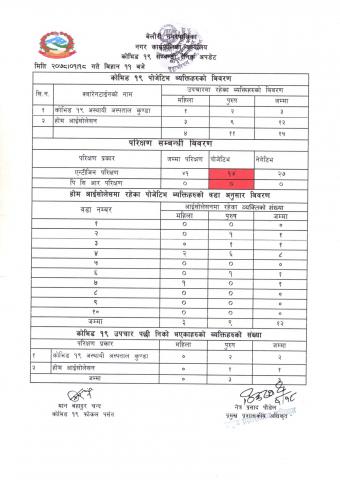 बेलौरी नगरपालिका
नगर कार्यपालिकाको कार्यालय
कोभिड १९ सम्बन्धी दैनिक अपडेट
मिति २०७८।०९।१८ गते बिहान ११ बजे
कोभिड १९ पोजेटिभ व्यक्तिहरुको विवरण
सि.न. क्वारेनटाईनको नाम उपचारमा रहेका व्यक्तिहरुको विवरण
महिला पुरुष जम्मा
१ कोभिड १९ अस्थायी अस्पताल कुण्डा १ २ ३
२ होम आईसोलेसन ३ ९ १२
४ ११ १५
परिक्षण सम्बन्धी विवरण
परिक्षण प्रकार जम्मा परिक्षण पोजेटिभ नेगेटिभ
एन्टीजिन परिक्षण ४१ १४ २७
पि सि आर परिक्षण ० ० ०
होम आईसोलेसमा रहेका पोजेटिभ व्यक्तिहरुको वडा अनुसार विवरण
वडा नम्बर आईसोलेसनमा रहेका व्यक्तिको संख्या
महिला पुरुष जम्मा
१ ० ० ०
२ ० १ १
३ ० १ १
४ २ ६ ८
५ ० ० ०
६ ० १ १
७ १ ० १
८ ० ० ०
९ ० ० ०
१० ० ० ०
जम्मा ३ ९ १२
कोभिड १९ उपचार पश्ची निको भएकाहरुको व्यक्तिहरुको संख्या
परिक्षण प्रकार महिला पुरुष जम्मा
१ कोभिड १९ अस्थायी अस्पताल कुण्डा ० २ २
२ होम आईसोलेसन ० १ १
जम्मा ० ३
मान बहादुर चन्द
कोभिड १९ फोकल पर्सन
नेत्र प्रसाद पौडेल
प्रमुख प्रशासकीय अधिकृत